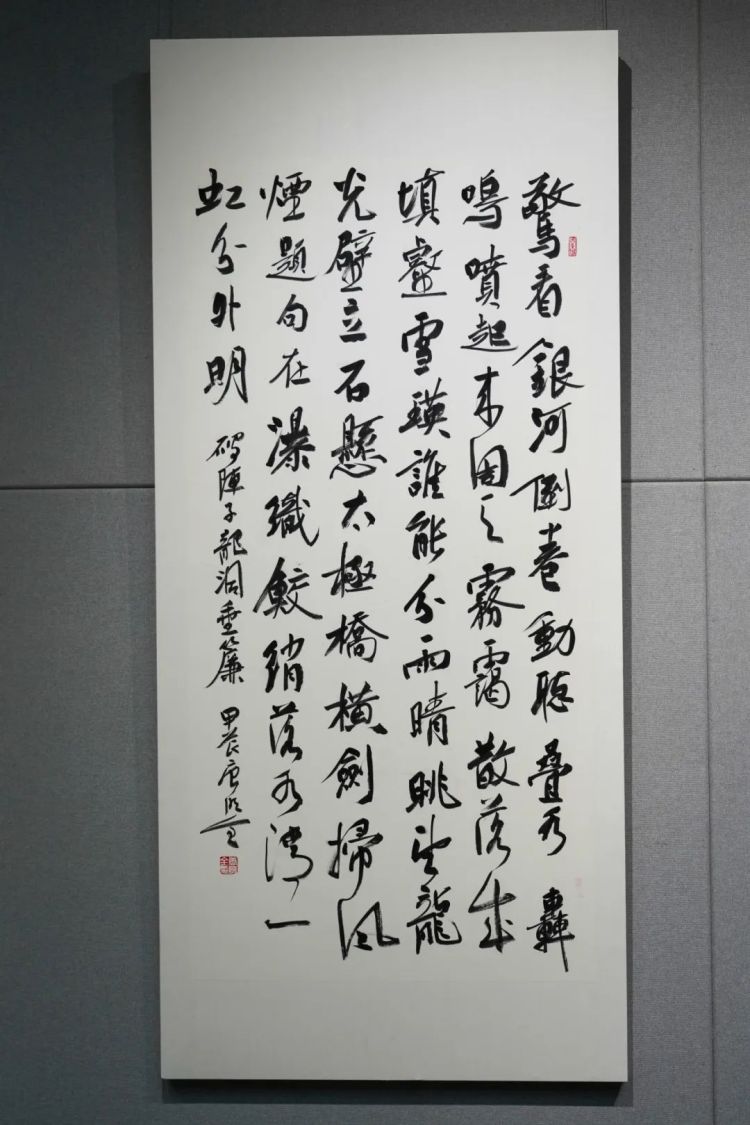 驚看銀河倒卷動聽疊水轟
鳴噴起來周天霧靄散落成
填壑雪瑛誰能分雨晴眺望龍
光壁立石懸太極橋橫劍掃風
煙題句在瀑織鮫綃落水灣一
虹分外明
破陣子龍洞垂簾 甲辰唐